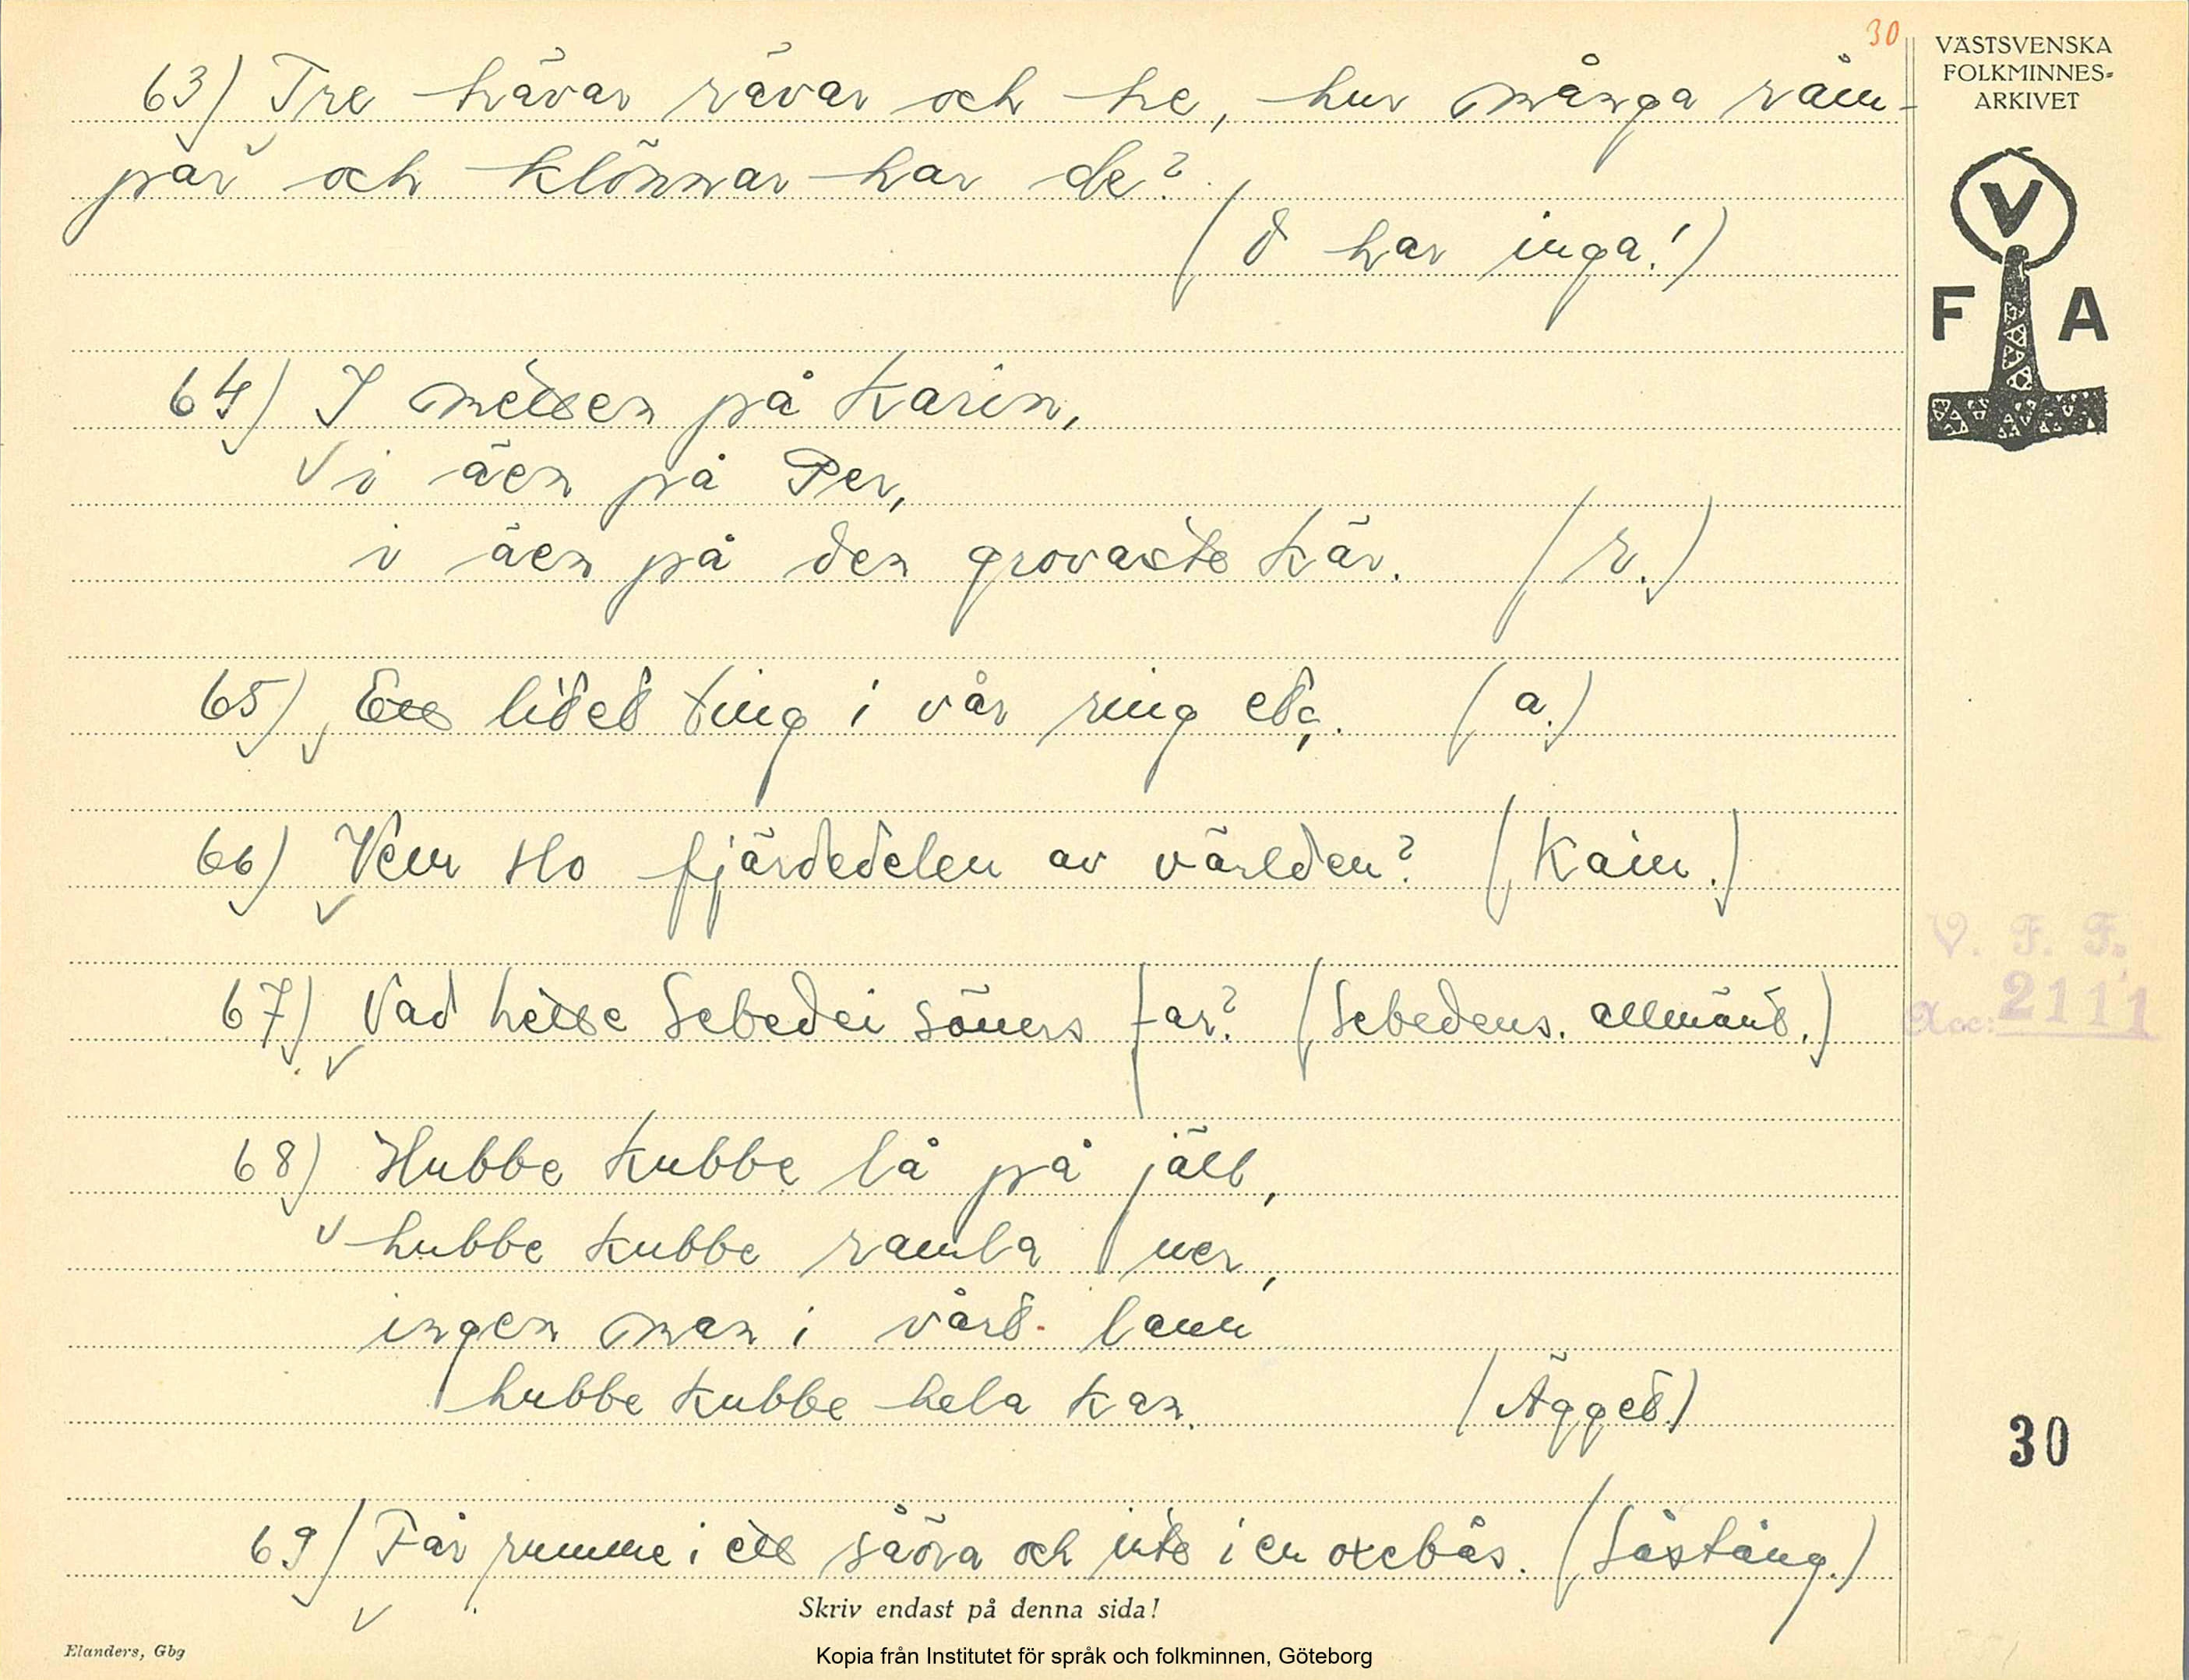 30
63) Tre hävar rävar och he, hur många räm-
par och klönnar har de?
(d har inga!)
64) I mitten på Karin,
i äen på Per,
i äen på den grovaste kär. (r.)
65) Ett litet ting i vår ring etc. (a.)
66) Vem slo fjärdedelen av världen? (Kain.)
67) Vad hette Sebedei söners far? (Sebedeus. allmänt.)
68) Hubbe kubbe lå på jäll,
hubbe kubbe ramla ner,
ingen man i vårt lann
hubbe kubbe hela kan. (Ägget)
69) Får rumme i ett såöra och inte i en oxebås. (Såstång.)
Skriv endast på denna sida!
Elanders, Gbg
Kopia från Institutet för språk och folkminnen, Göteborg
VÄSTSVENSKA
FOLKMINNES-
ARKIVET
V
F A
V. F. F.
Acc: 2111
30